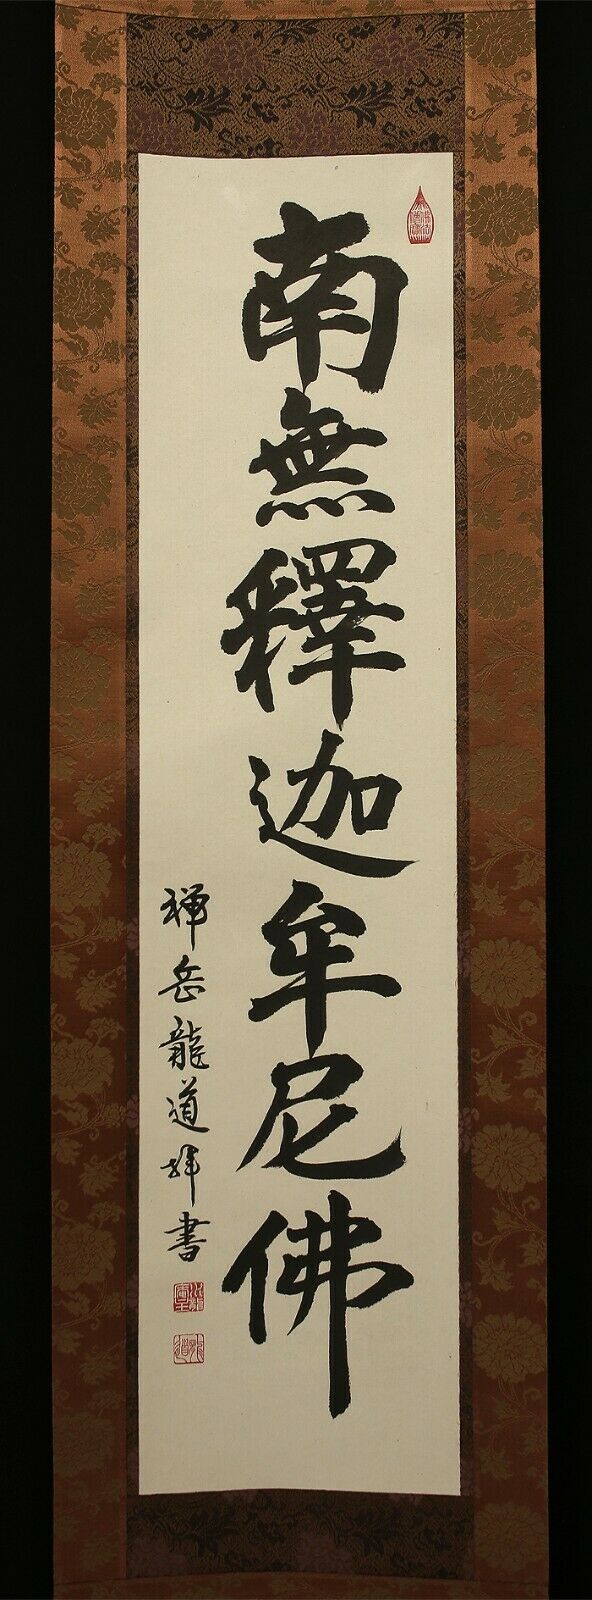 南無釋迦牟尼佛
禅岳龍道拝書